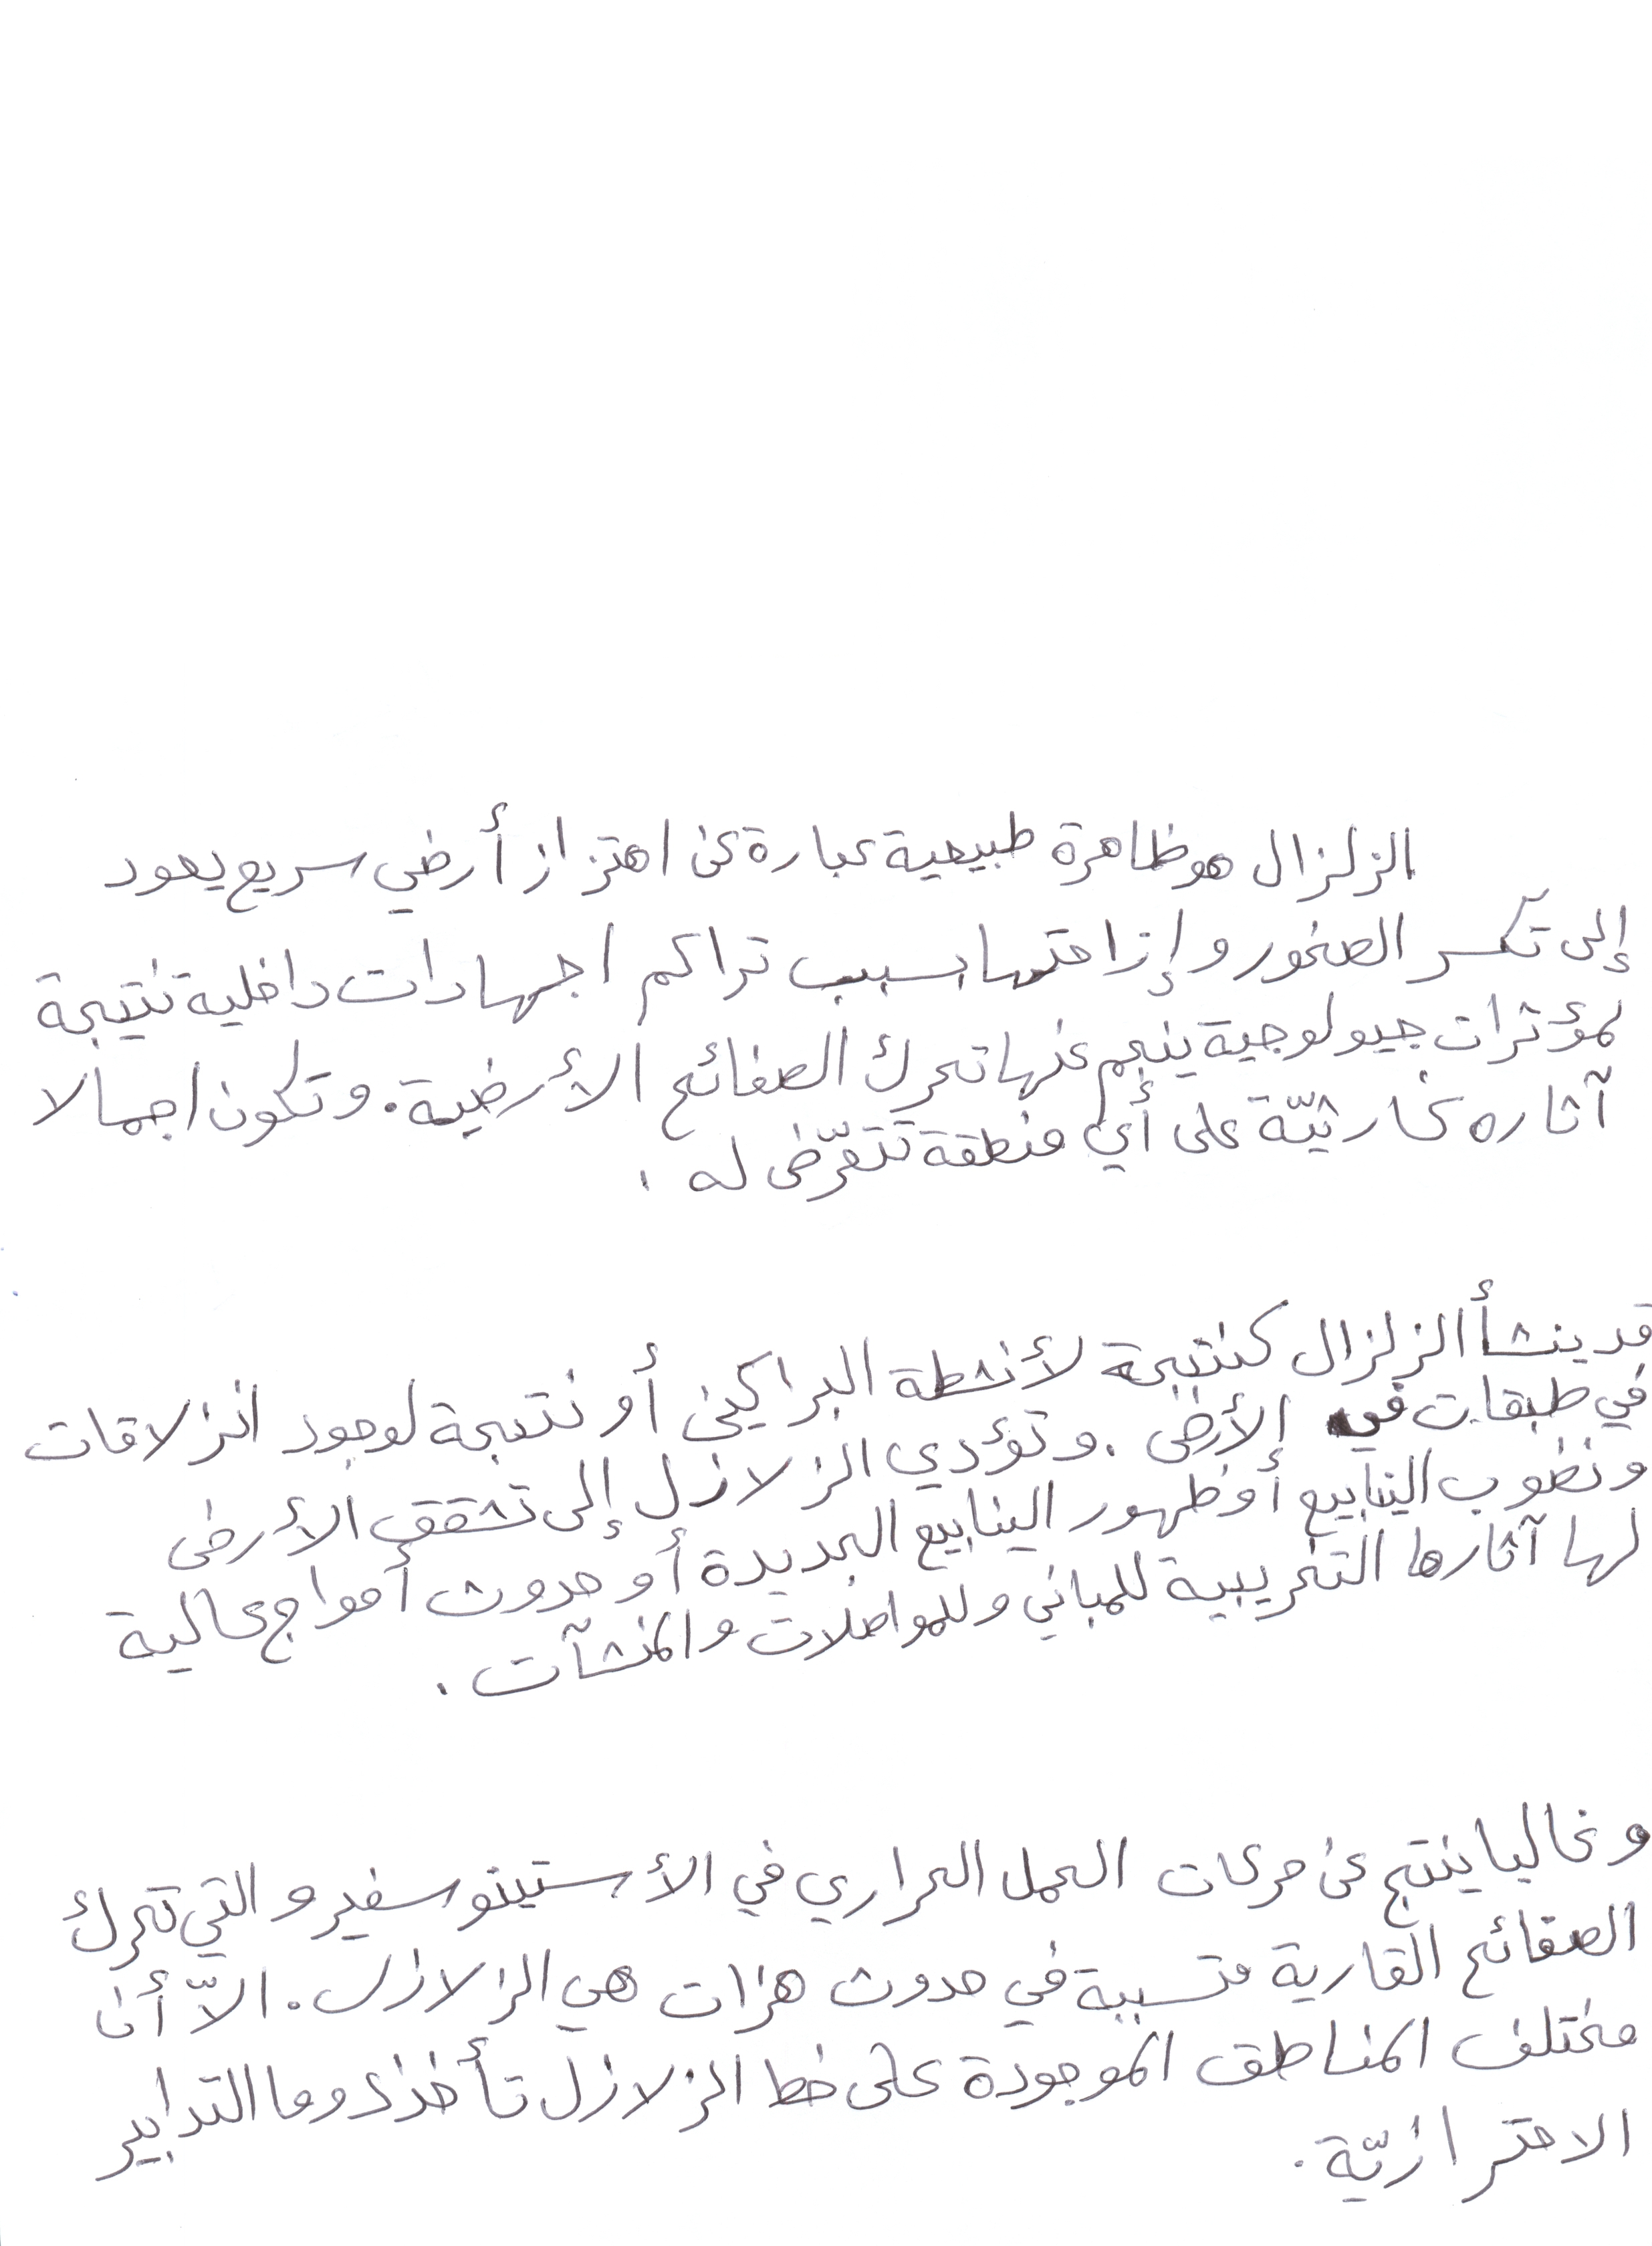 الزلزال هو ظاهرة طبيعية عبارة عن اهتزاز أرضي سريع يعود
إلى تكسر الصخور وإزاحتها بسبب تراكم اجهادات داخلية نتيجة
لمؤثرات جيولوجية ينجم عنها تحرك الصفائح الأرضية. وتكون اجمالا
آثاره كارثيّة على أي منطقة تتعرّض له.
قد ينشأ الزلزال كنتيجة لأنشطة البراكين أو نتيجة لوجود انزلاقات
في طبقات في الأرض. وتؤدي الزلازل إلى تشقق الأرض
ونضوب الينابيع أو ظهور الينابيع الجديدة أو حدوث أمواج عالية
لها آثارها التخريبية للمباني وللمواصلات والمنشآت.
وغالبا ينتج عن حركات الحمل الحراري في الأستينوسفير والتي تحرك
الصفائح القارية متسببة في حدوث هزات هي الزلازل. الاّ أن
مختلف المناطق الموجودة على خط الزلازل تأخذ دوما التدابير
الاحترازيّة.